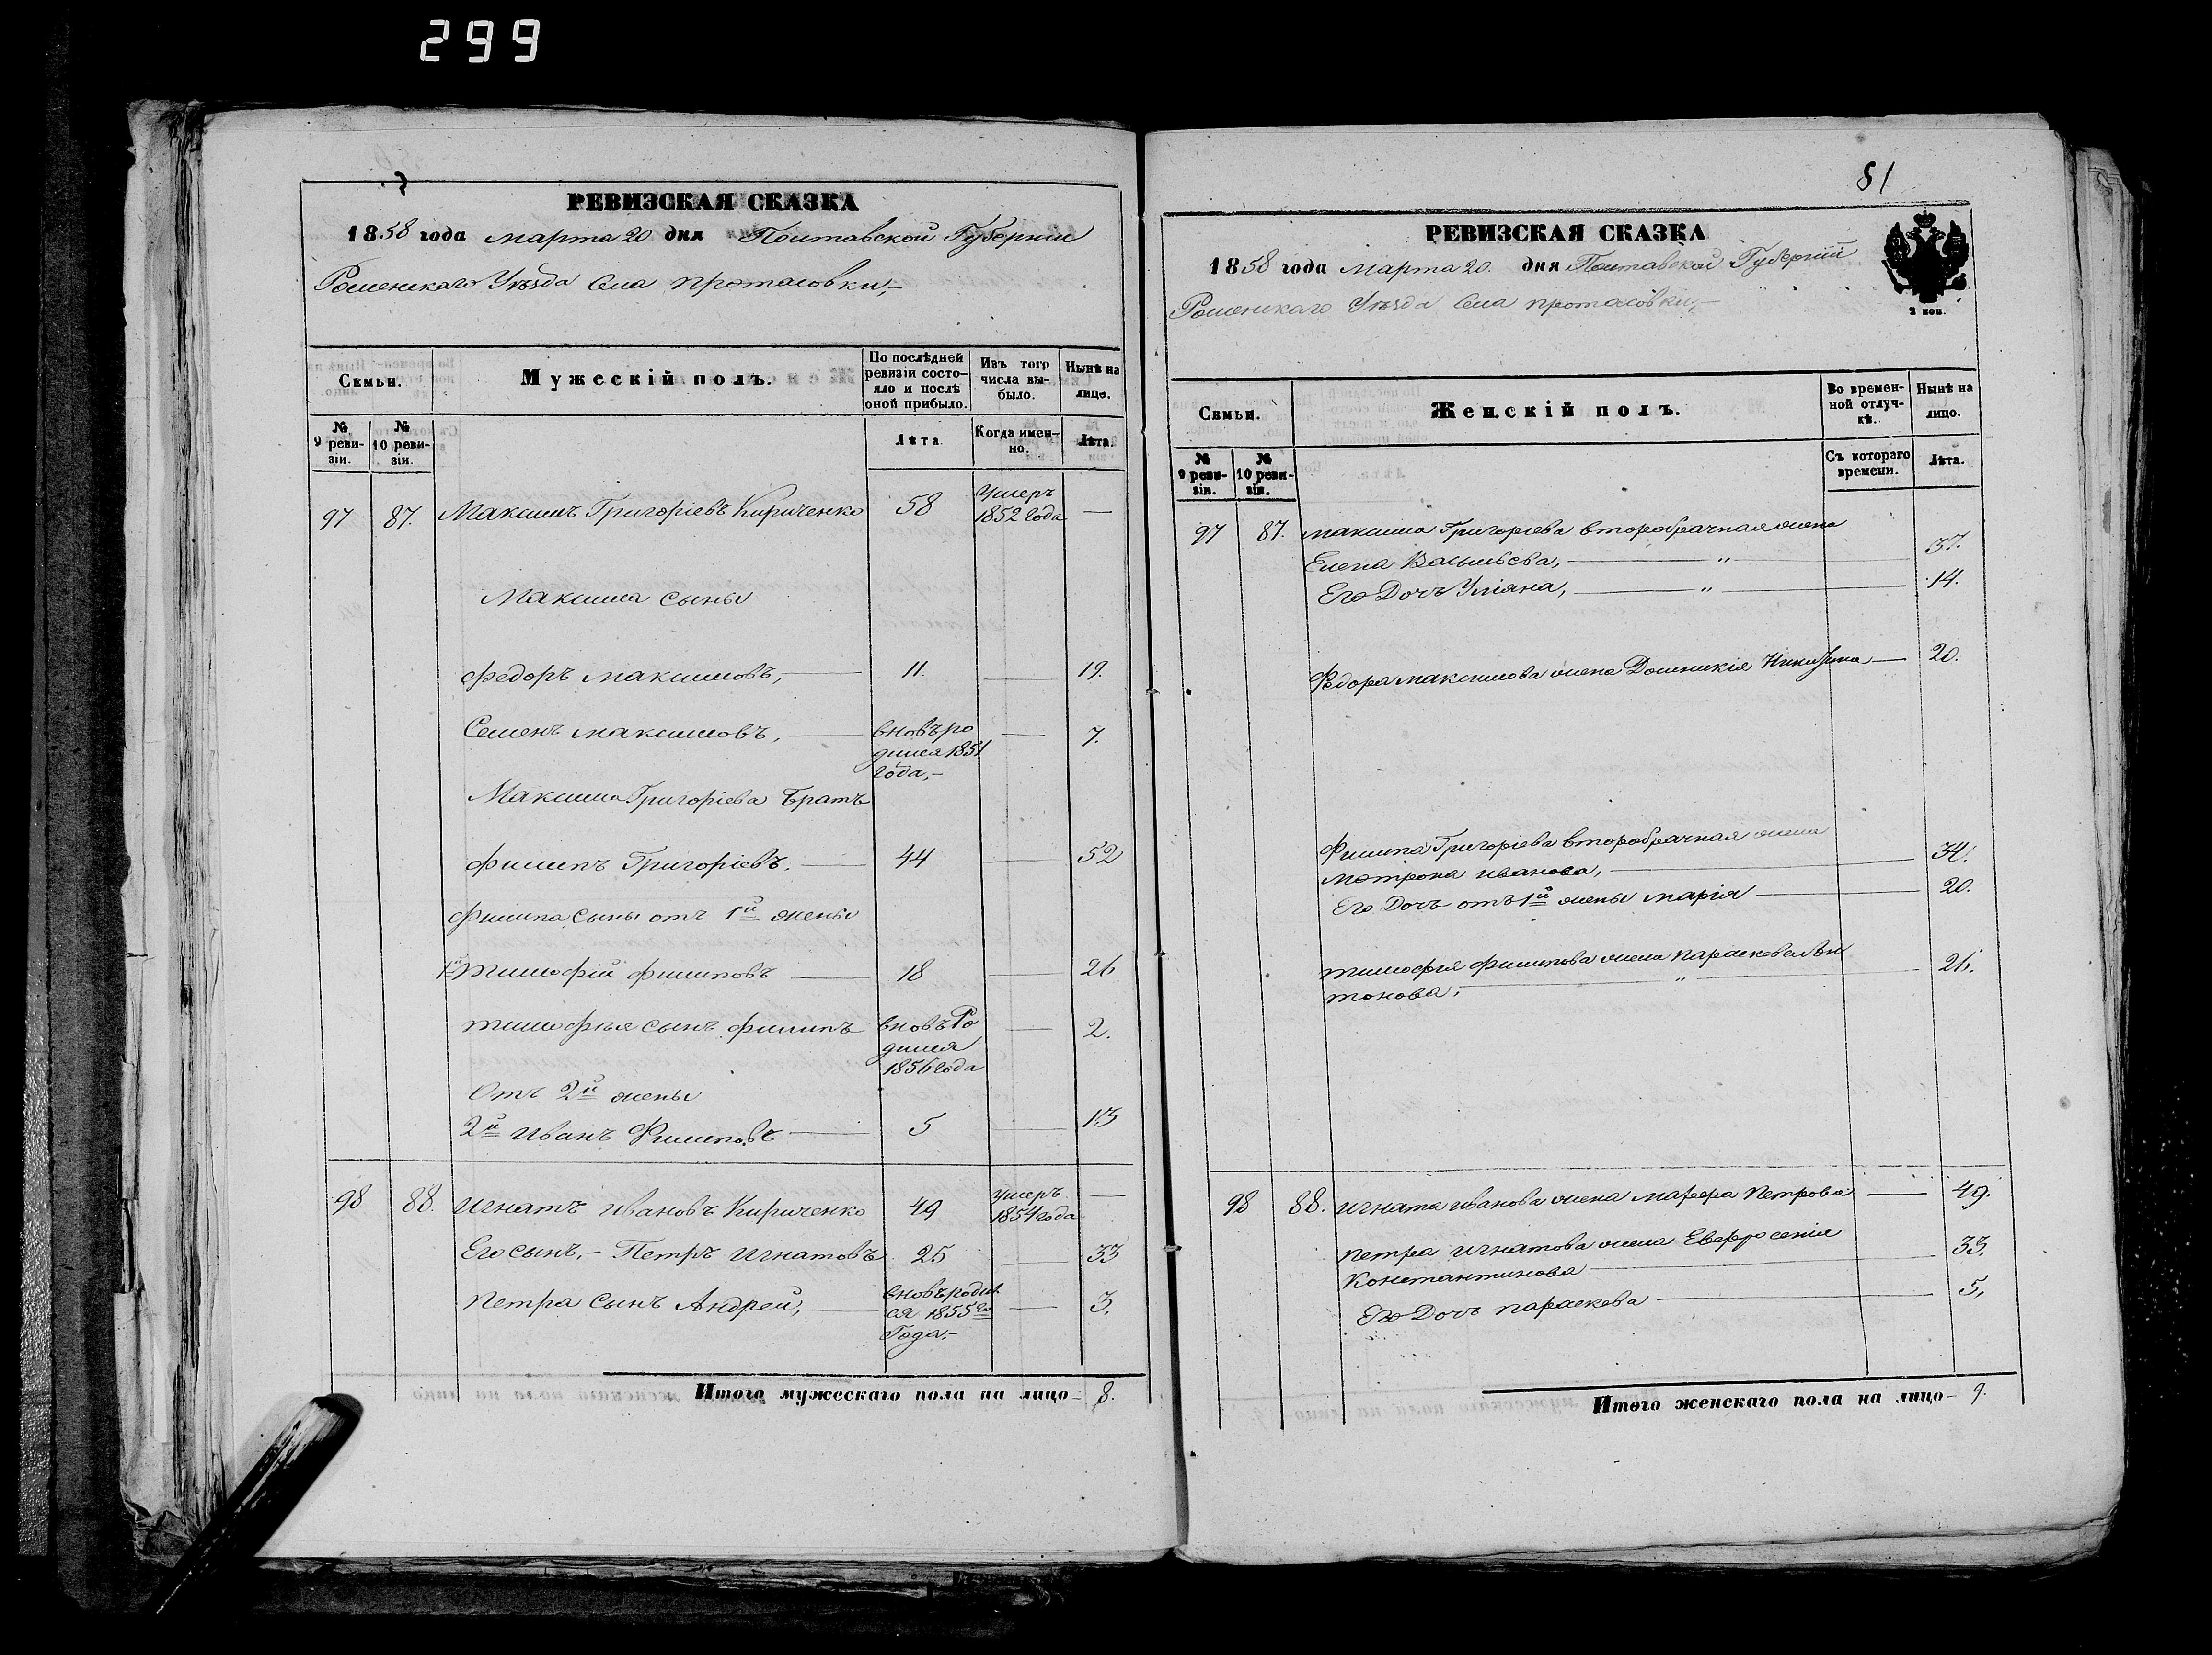 299
РЕВИЗСКАЯ СКАЗКА
1858 года марта 20 дня Полтавской Губернии
Роменскаго Уѣзда Села протасовки,-
Семьи.
Мужескій полъ.
По послѣдней ревизіи состояло и послѣ оной прибыло.
Изъ того числа выбыло.
Нынѣ на лицо.
№ 9 ревизіи.
№ 10 ревизіи.
Лѣта
Когда именно.
Лѣта.
97 87. Максимъ Григоріевъ Кириченко 58 Умеръ 1852 года —
Максима сыны
федоръ максимовъ, — 11. — 19.
Семенъ максимовъ, — вновь родился 1851 года,- — 7.
Максима Григоріева братъ
филипъ Григоріевъ. — 44 — 52
филипа сыны отъ 1й жены
1й тимофій филиповъ — 18 — 26
тимофѣя сынъ филипъ вновь Родился 1856 года — 2.
Отъ 2й жены
2й иванъ Филиповъ — 5 — 13
98 88. Игнатъ ивановъ Кириченко 49 умеръ 1854 года —
Его сынъ,- Петръ игнатовъ 25 — 33
петра сынъ Андрей, — вновь родился 1855го Года,- — 3.
Итого мужескаго пола на лицо- 8.
81
РЕВИЗСКАЯ СКАЗКА
1858 года марта 20. дня Полтавской Губерній
Роменскаго Уѣзда Села протасовки,-
2 коп.
Семьи.
Женскій полъ.
Во временной отлучкѣ.
Нынѣ на лицо.
№ 9 ревизіи.
№ 10 ревизіи.
Съ котораго времени.
Лѣта.
97 87. максима Григоріева второбрачная жена
Елена Васильева, — " — 37.
Его Дочь Уліяна, — " — 14.
Федора максимова жена Домникія Никитина — 20.
Филипа Григоріева второбрачная жена
мотрона иванова, — 34.
Его Дочь отъ 1й жены марія — 20.
тимофея филипова жена параскева Ан
тонова, — " — 26.
98 88. игната иванова жена марфа петрова — 49.
петра игнатова жена Евфросенія
Константинова — 33.
Его Дочь параскева — 5,
Итого женскаго пола на лицо- 9.